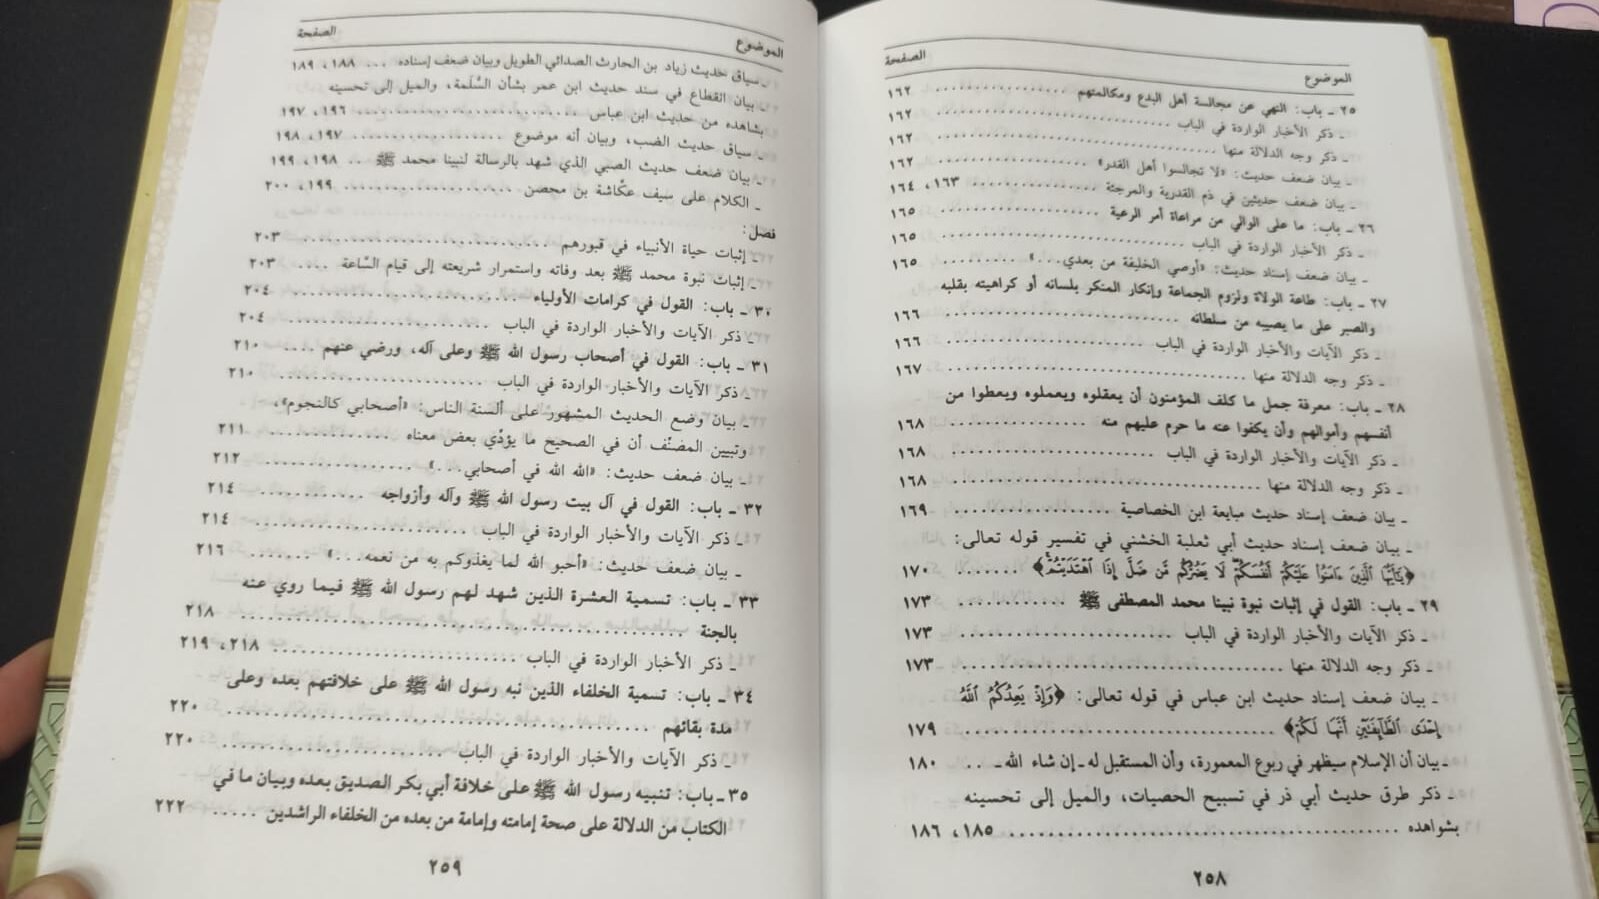 الموضوع الصفحة
٢٥ ـ باب: النهي عن مجالسة أهل البدع ومكالمتهم .................... ١٦٢
ـ ذكر الأخبار الواردة في الباب .................... ١٦٢
ـ ذكر وجه الدلالة منها .................... ١٦٢
ـ بيان ضعف حديث: «لا تجالسوا أهل القدر» .................... ١٦٢
ـ بيان ضعف حديثين في ذم القدرية والمرجئة .................... ١٦٣، ١٦٤
٢٦ ـ باب: ما على الوالي من مراعاة أمر الرعية .................... ١٦٥
ـ ذكر الأخبار الواردة في الباب .................... ١٦٥
ـ بيان ضعف إسناد حديث: «أوصي الخليفة من بعدي....» .......... ١٦٥
٢٧ ـ باب: طاعة الولاة ولزوم الجماعة وإنكار المنكر بلسانه أو كراهيته بقلبه
والصبر على ما يصيبه من سلطانه .................... ١٦٦
ـ ذكر الآيات والأخبار الواردة في الباب .................... ١٦٦
ـ ذكر وجه الدلالة منها .................... ١٦٧
٢٨ ـ باب: معرفة جمل ما كلف المؤمنون أن يعقلوه ويعملوه ويعطوا من
أنفسهم وأموالهم وأن يكفوا عنه ما حرم عليهم منه .................... ١٦٨
ـ ذكر الآيات والأخبار الواردة في الباب .................... ١٦٨
ـ ذكر وجه الدلالة منها .................... ١٦٨
ـ بيان ضعف إسناد حديث مبايعة ابن الخصاصية .................... ١٦٩
ـ بيان ضعف إسناد حديث أبي ثعلبة الخشني في تفسير قوله تعالى:
﴿يَٰٓأَيُّهَا ٱلَّذِينَ ءَامَنُوا۟ عَلَيْكُمْ أَنفُسَكُمْ لَا يَضُرُّكُم مَّن ضَلَّ إِذَا ٱهْتَدَيْتُمْ﴾ ....... ١٧٠
٢٩ ـ باب: القول في إثبات نبوة نبينا محمد المصطفى ﷺ ............ ١٧٣
ـ ذكر الآيات والأخبار الواردة في الباب .................... ١٧٣
ـ ذكر وجه الدلالة منها .................... ١٧٣
ـ بيان ضعف إسناد حديث ابن عباس في قوله تعالى: ﴿وَإِذْ يَعِدُكُمُ ٱللَّهُ
إِحْدَى ٱلطَّآئِفَتَيْنِ أَنَّهَا لَكُمْ﴾ .................... ١٧٩
ـ بيان أن الإسلام سيظهر في ربوع المعمورة، وأن المستقبل له ـ إن شاء الله ـ ... ١٨٠
ـ ذكر طرق حديث أبي ذر في تسبيح الحصيات، والميل إلى تحسينه
بشواهده .................... ١٨٥، ١٨٦
٢٥٨
الموضوع الصفحة
ـ سياق حديث زياد بن الحارث الصدائي الطويل وبيان ضعف إسناده ... ١٨٨، ١٨٩
ـ بيان انقطاع في سند حديث ابن عمر بشأن السَّلَمة، والميل إلى تحسينه
بشاهده من حديث ابن عباس .................... ١٩٦، ١٩٧
ـ سياق حديث الضب، وبيان أنه موضوع .................... ١٩٧، ١٩٨
ـ بيان ضعف حديث الصبي الذي شهد بالرسالة لنبينا محمد ﷺ ... ١٩٨، ١٩٩
ـ الكلام على سيف عكّاشة بن محصن .................... ١٩٩، ٢٠٠
فصل:
ـ إثبات حياة الأنبياء في قبورهم .................... ٢٠٣
ـ إثبات نبوة محمد ﷺ بعد وفاته واستمرار شريعته إلى قيام السَّاعة ..... ٢٠٣
٣٠ ـ باب: القول في كرامات الأولياء .................... ٢٠٤
ـ ذكر الآيات والأخبار الواردة في الباب .................... ٢٠٤
٣١ ـ باب: القول في أصحاب رسول الله ﷺ وعلى آله، ورضي عنهم .... ٢١٠
ـ ذكر الآيات والأخبار الواردة في الباب .................... ٢١٠
ـ بيان وضع الحديث المشهور على ألسنة الناس: «أصحابي كالنجوم»،
وتبيين المصنّف أن في الصحيح ما يؤدّي بعض معناه .................... ٢١١
ـ بيان ضعف حديث: «الله الله في أصحابي....» .................... ٢١٢
٣٢ ـ باب: القول في آل بيت رسول الله ﷺ وآله وأزواجه ............ ٢١٤
ـ ذكر الآيات والأخبار الواردة في الباب .................... ٢١٤
ـ بيان ضعف حديث: «أحبو الله لما يغذوكم به من نعمه....» ........ ٢١٦
٣٣ ـ باب: تسمية العشرة الذين شهد لهم رسول الله ﷺ فيما روي عنه
بالجنة .................... ٢١٨
ـ ذكر الأخبار الواردة في الباب .................... ٢١٨، ٢١٩
٣٤ ـ باب: تسمية الخلفاء الذين نبه رسول الله ﷺ على خلافتهم بعده وعلى
مدة بقائهم .................... ٢٢٠
ـ ذكر الآيات والأخبار الواردة في الباب .................... ٢٢٠
٣٥ ـ باب: تنبيه رسول الله ﷺ على خلافة أبي بكر الصديق بعده وبيان ما في
الكتاب من الدلالة على صحة إمامته وإمامة من بعده من الخلفاء الراشدين ..... ٢٢٢
٢٥٩